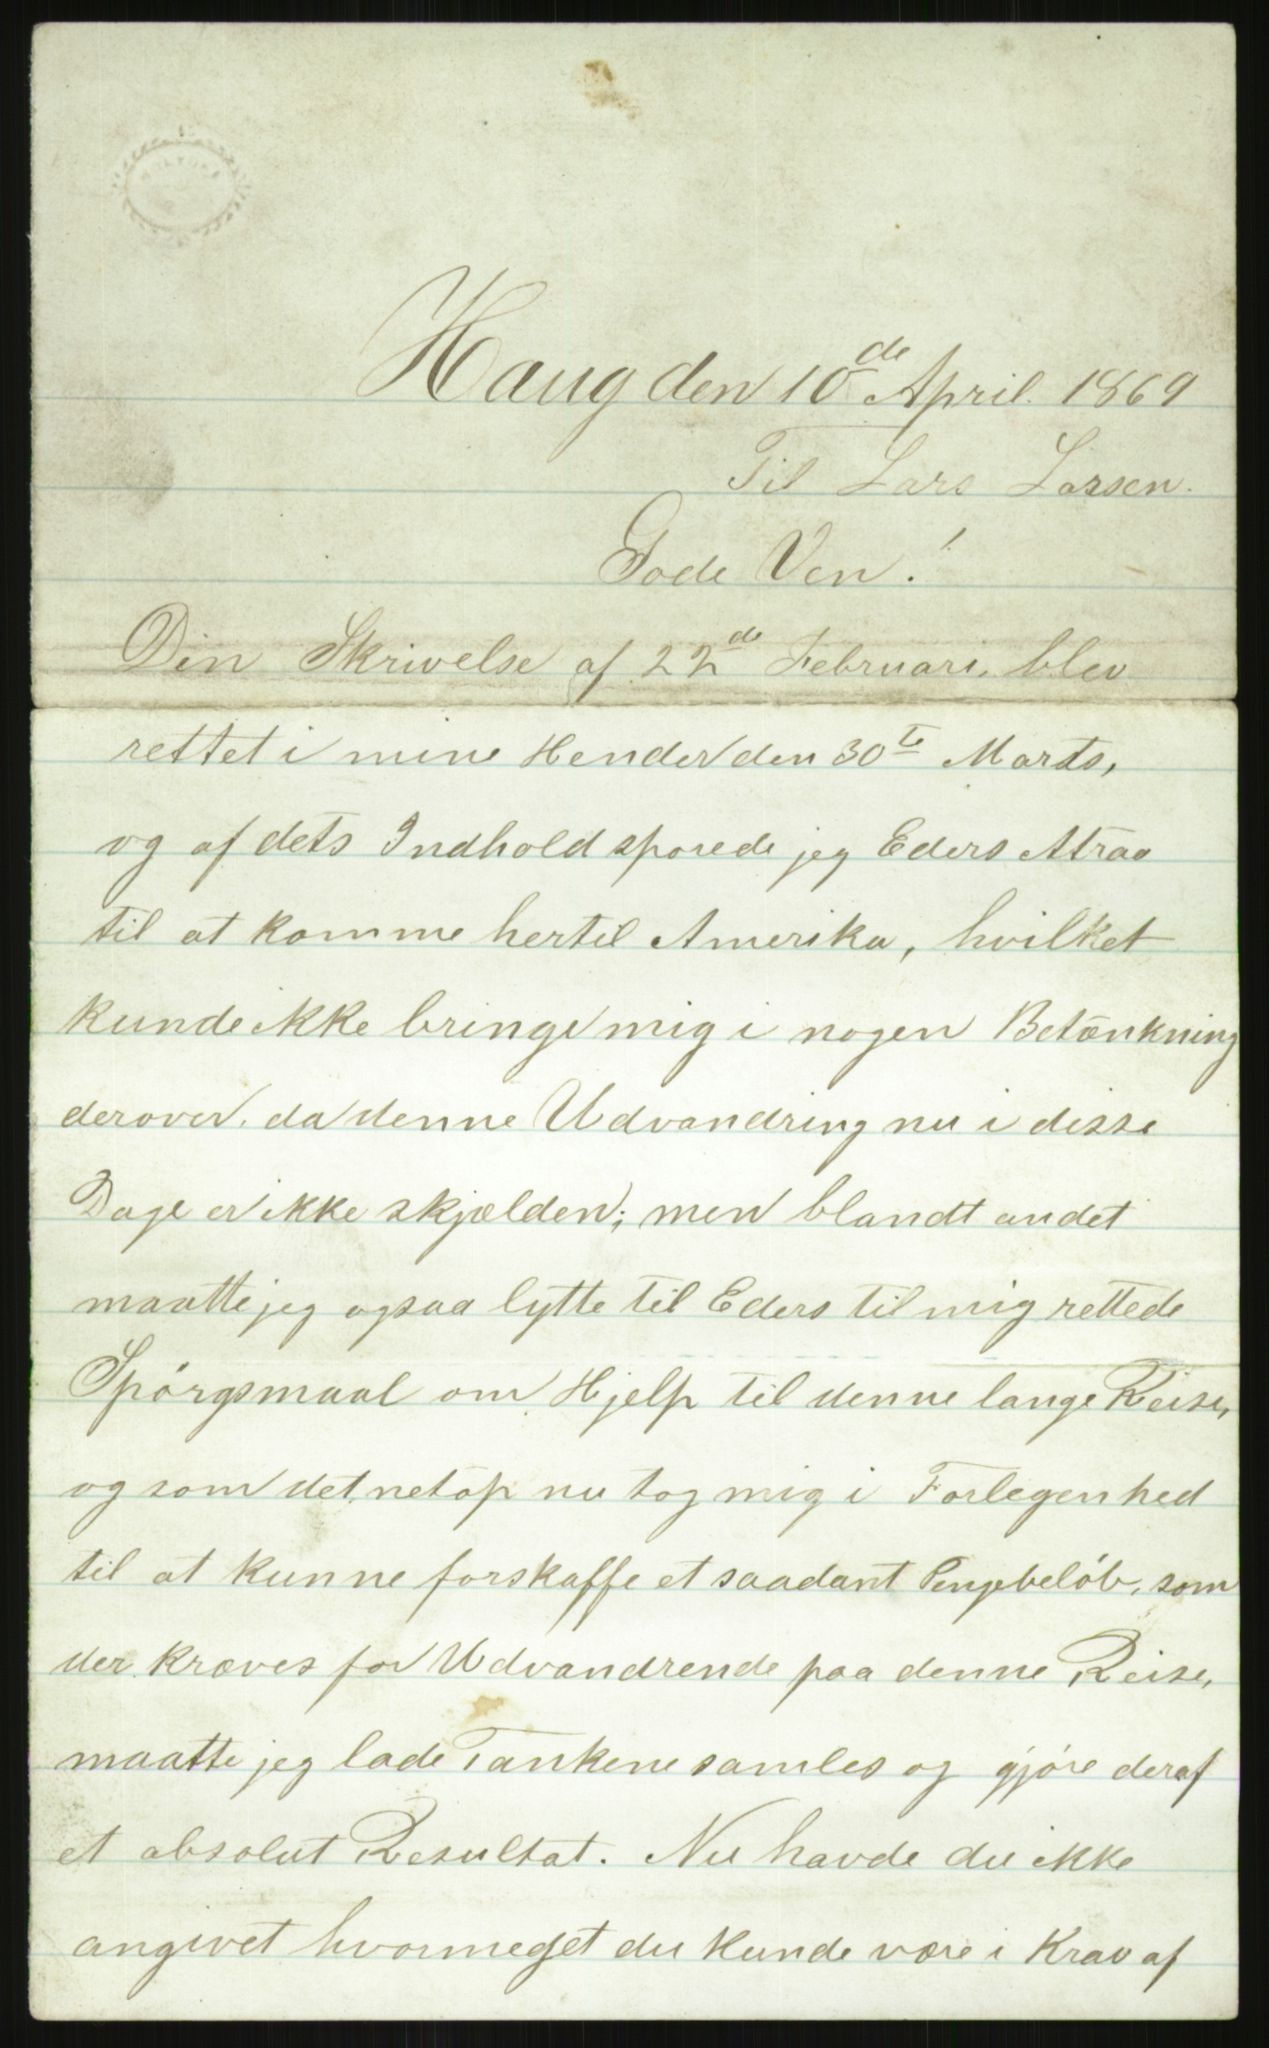 Haug den 10de April. 1869
Til Lars Larsen.
Gode Ven!
Din Skrivelse af 22de Februari, blev
rettet i mine Hender den 30te Marts,
og af dets Indhold sporede jeg Eders Atraa
til at komme hertil Amerika, hvilket
kunde ikke bringe mig i nogen Betænkning
derover, da denne Udvandring nu i disse
Dage er ikke skjælden; men blandt andet
maatte jeg ogsaa lytte til Eders til mig rettede
Spørgsmaal om Hjelp til denne lange Reise,
og som det netop nu tog mig i Forlegenhed
til at kunne forskaffe et saadant Pengebeløb, som
der kræves for Udvandrende paa denne Reise,
maatte jeg lade Tankene samles og gjøre deraf
et absolut Resultat. Nu havde du ikke
angivet hvormeget du kunde være i Krav af